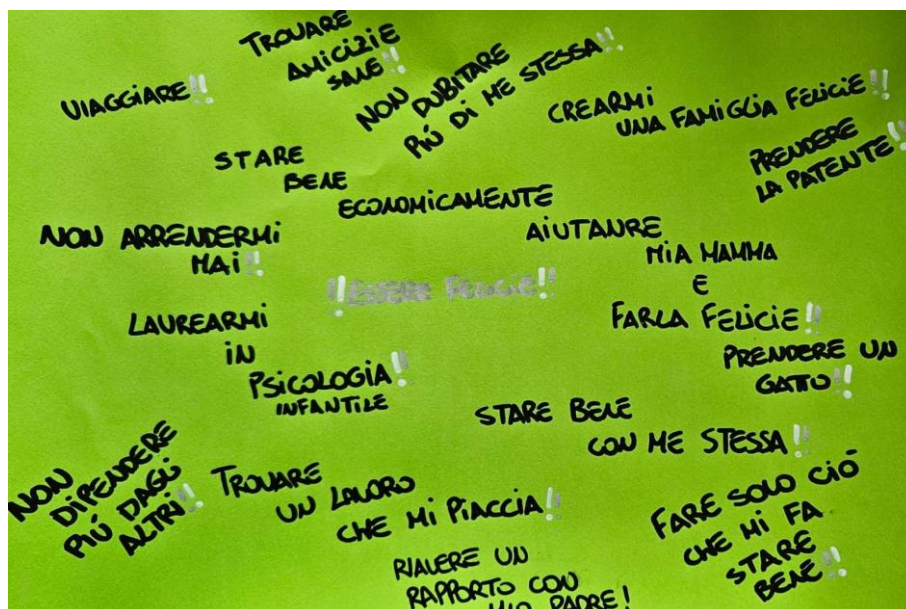 TROVARE
AMICIZIE
SANE!!
VIAGGIARE!!
NON DUBITARE
PIÚ DI ME STESSA!!
CREARMI
UNA FAMIGLIA FELICIE!!
PRENDERE
LA PATENTE!!
STARE
BENE
ECONOMICAMENTE
NON ARRENDERMI
MAI!!
AIUTANRE
MIA MAMMA
E
FARLA FELICIE!!
!!ESSERE FELICIE!!
LAUREARMI
IN
PSICOLOGIA!!
INFANTILE
PRENDERE UN
GATTO!!
STARE BENE
CON ME STESSA!!
NON
DIPENDERE
PIÚ DAGLI
ALTRI!!
TROVARE
UN LAVORO
CHE MI PIACCIA!!
FARE SOLO CIÓ
CHE MI FA
STARE
BENE!!
UN
RAPPORTO CON
MIO PADRE!